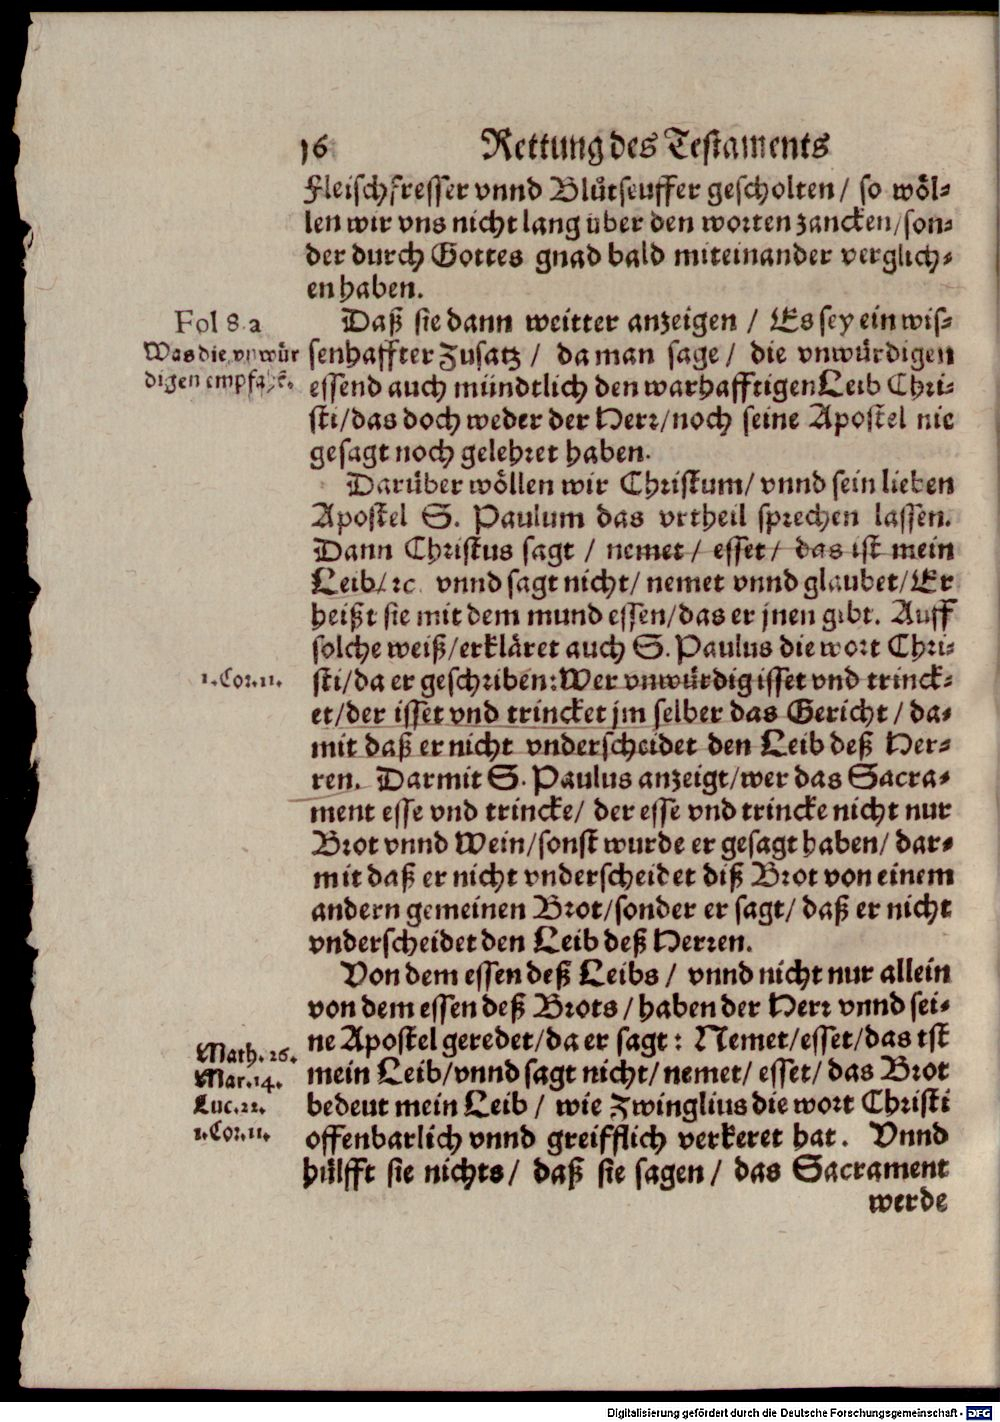 16 Rettung des Testaments
Fleischfresser vnnd Blůtseuffer gescholten / so wöl-
len wir vns nicht lang über den worten zancken / son-
der durch Gottes gnad bald miteinander verglich-
en haben.
Fol 8 a
Daß sie dann weitter anzeigen / Es sey ein wis-
Was die vnwür
senhaffter Zusatz / da man sage / die vnwürdigen
digen empfahē.
essend auch mündtlich den warhafftigen Leib Chri-
sti / das doch weder der Herr / noch seine Apostel nie
gesagt noch gelehret haben.
Darüber wöllen wir Christum / vnnd sein lieben
Apostel S. Paulum das vrtheil sprechen lassen.
Dann Christus sagt / nemet / esset / das ist mein
Leib / ꝛc. vnnd sagt nicht / nemet vnnd glaubet / Er
heißt sie mit dem mund essen / das er jnen gibt. Auff
solche weiß / erkläret auch S. Paulus die wort Chri-
1. Cor. 11.
sti / da er geschriben: Wer vnwürdig isset vnd trinck-
et / der isset vnd trincket jm selber das Gericht / da-
mit daß er nicht vnderscheidet den Leib deß Her-
ren. Darmit S. Paulus anzeigt / wer das Sacra-
ment esse vnd trincke / der esse vnd trincke nicht nur
Brot vnnd Wein / sonst wurde er gesagt haben / dar-
mit daß er nicht vnderscheidet diß Brot von einem
andern gemeinen Brot / sonder er sagt / daß er nicht
vnderscheidet den Leib deß Herren.
Von dem essen deß Leibs / vnnd nicht nur allein
von dem essen deß Brots / haben der Herr vnnd sei-
ne Apostel geredet / da er sagt: Nemet / esset / das ist
Math. 26.
Mar. 14.
mein Leib / vnnd sagt nicht / nemet / esset / das Brot
Luc. 22.
bedeut mein Leib / wie Zwinglius die wort Christi
1. Cor. 11.
offenbarlich vnnd greifflich verkeret hat. Vnnd
hülfft sie nichts / daß sie sagen / das Sacrament
werde
Digitalisierung gefördert durch die Deutsche Forschungsgemeinschaft - DFG